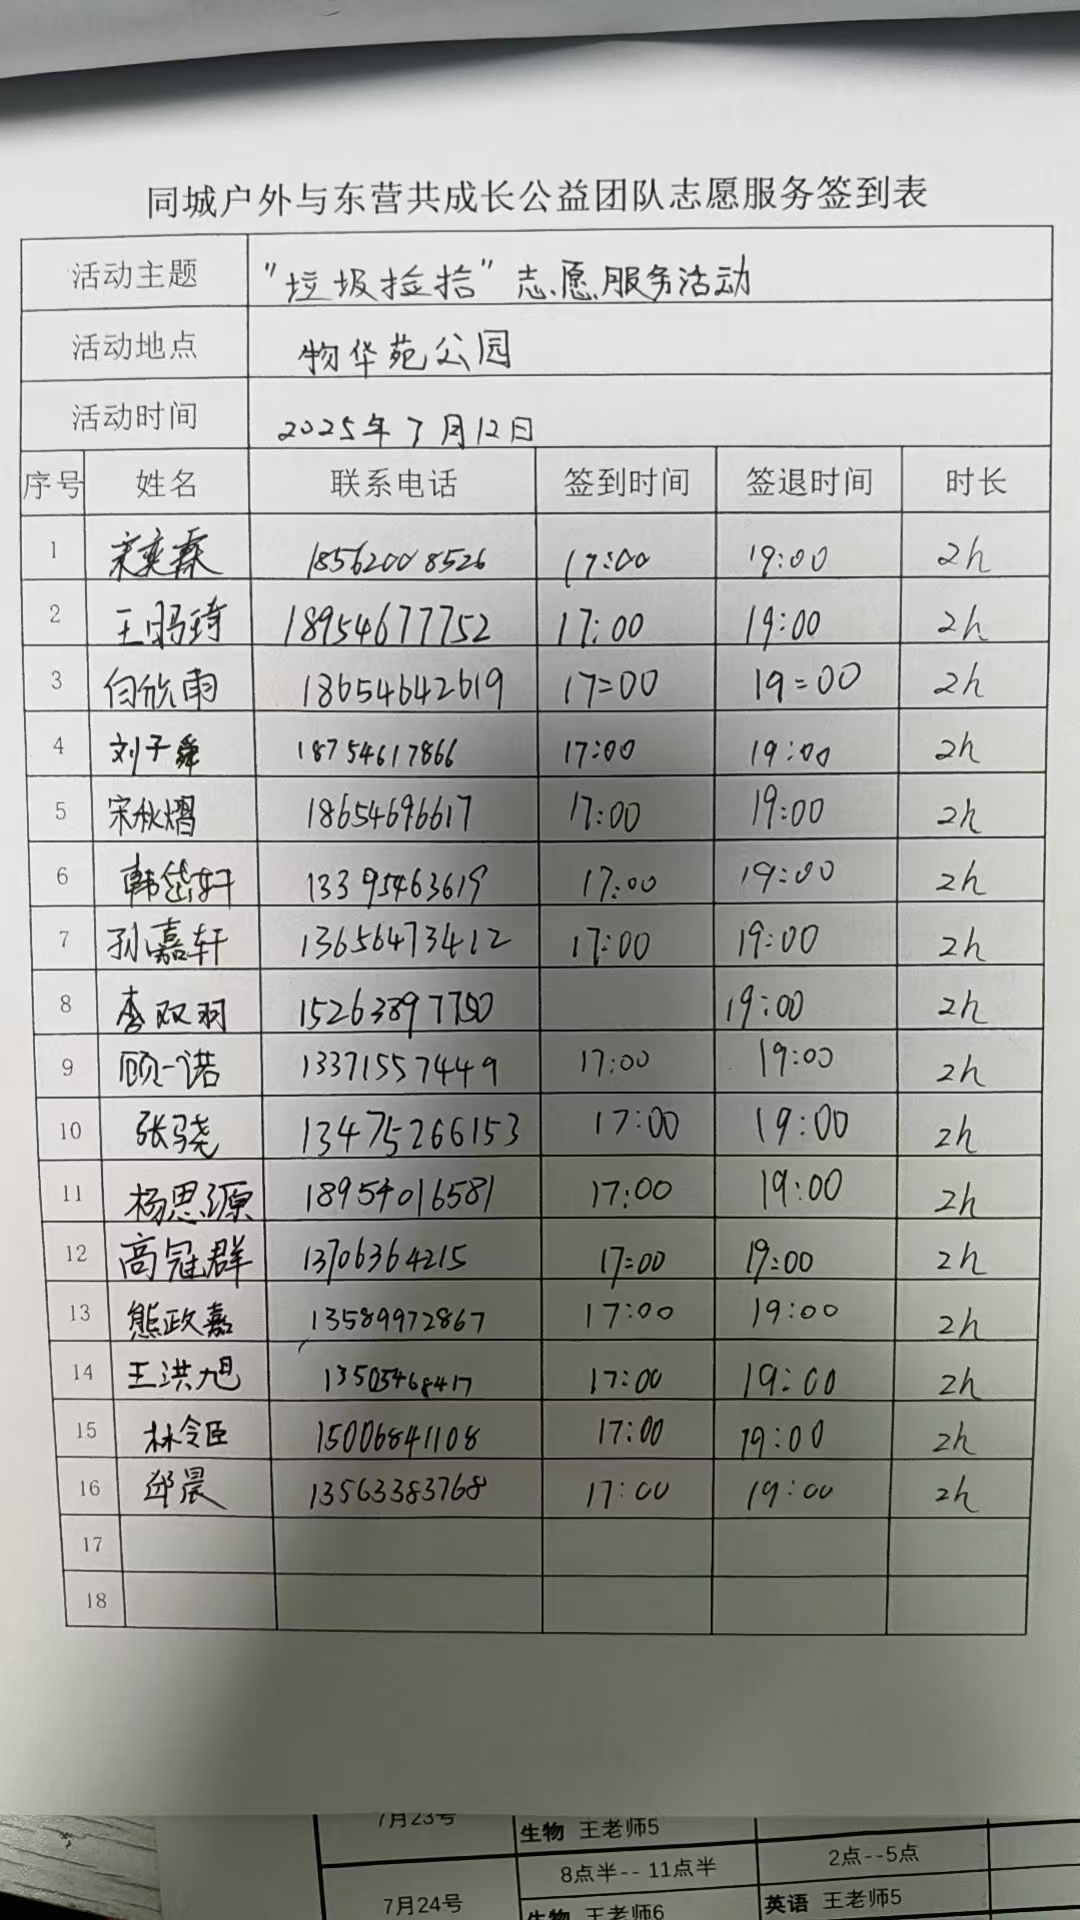 同城户外与东营共成长公益团队志愿服务签到表
活动主题 "垃圾捡拾"志愿服务活动
活动地点 物华苑公园
活动时间 2025年7月12日
序号 姓名 联系电话 签到时间 签退时间 时长
1 宋奕霖 18562008526 17:00 19:00 2h
2 王 琦 18954677752 17:00 19:00 2h
3 白欣雨 18654642619 17=00 19=00 2h
4 刘子舜 18754617866 17:00 19:00 2h
5 宋秋熠 18654696617 17:00 19:00 2h
6 韩岱轩 13395463619 17:00 19:00 2h
7 孙嘉轩 13656473412 17:00 19:00 2h
8 李双羽 15263897750 19:00 2h
9 顾一诺 13371557449 17:00 19:00 2h
10 张骁 13475266153 17:00 19:00 2h
11 杨思源 18954016581 17:00 19:00 2h
12 高冠群 13706364215 17:00 19:00 2h
13 熊政嘉 13589972867 17:00 19:00 2h
14 王洪旭 13505468417 17:00 19:00 2h
15 林令臣 15006841108 17:00 19:00 2h
16 邱晨 13563383768 17:00 19:00 2h
17
18
7月23号 生物 王老师5
8点半--11点半 2点--5点
7月24号 生物 王老师6 英语 王老师5